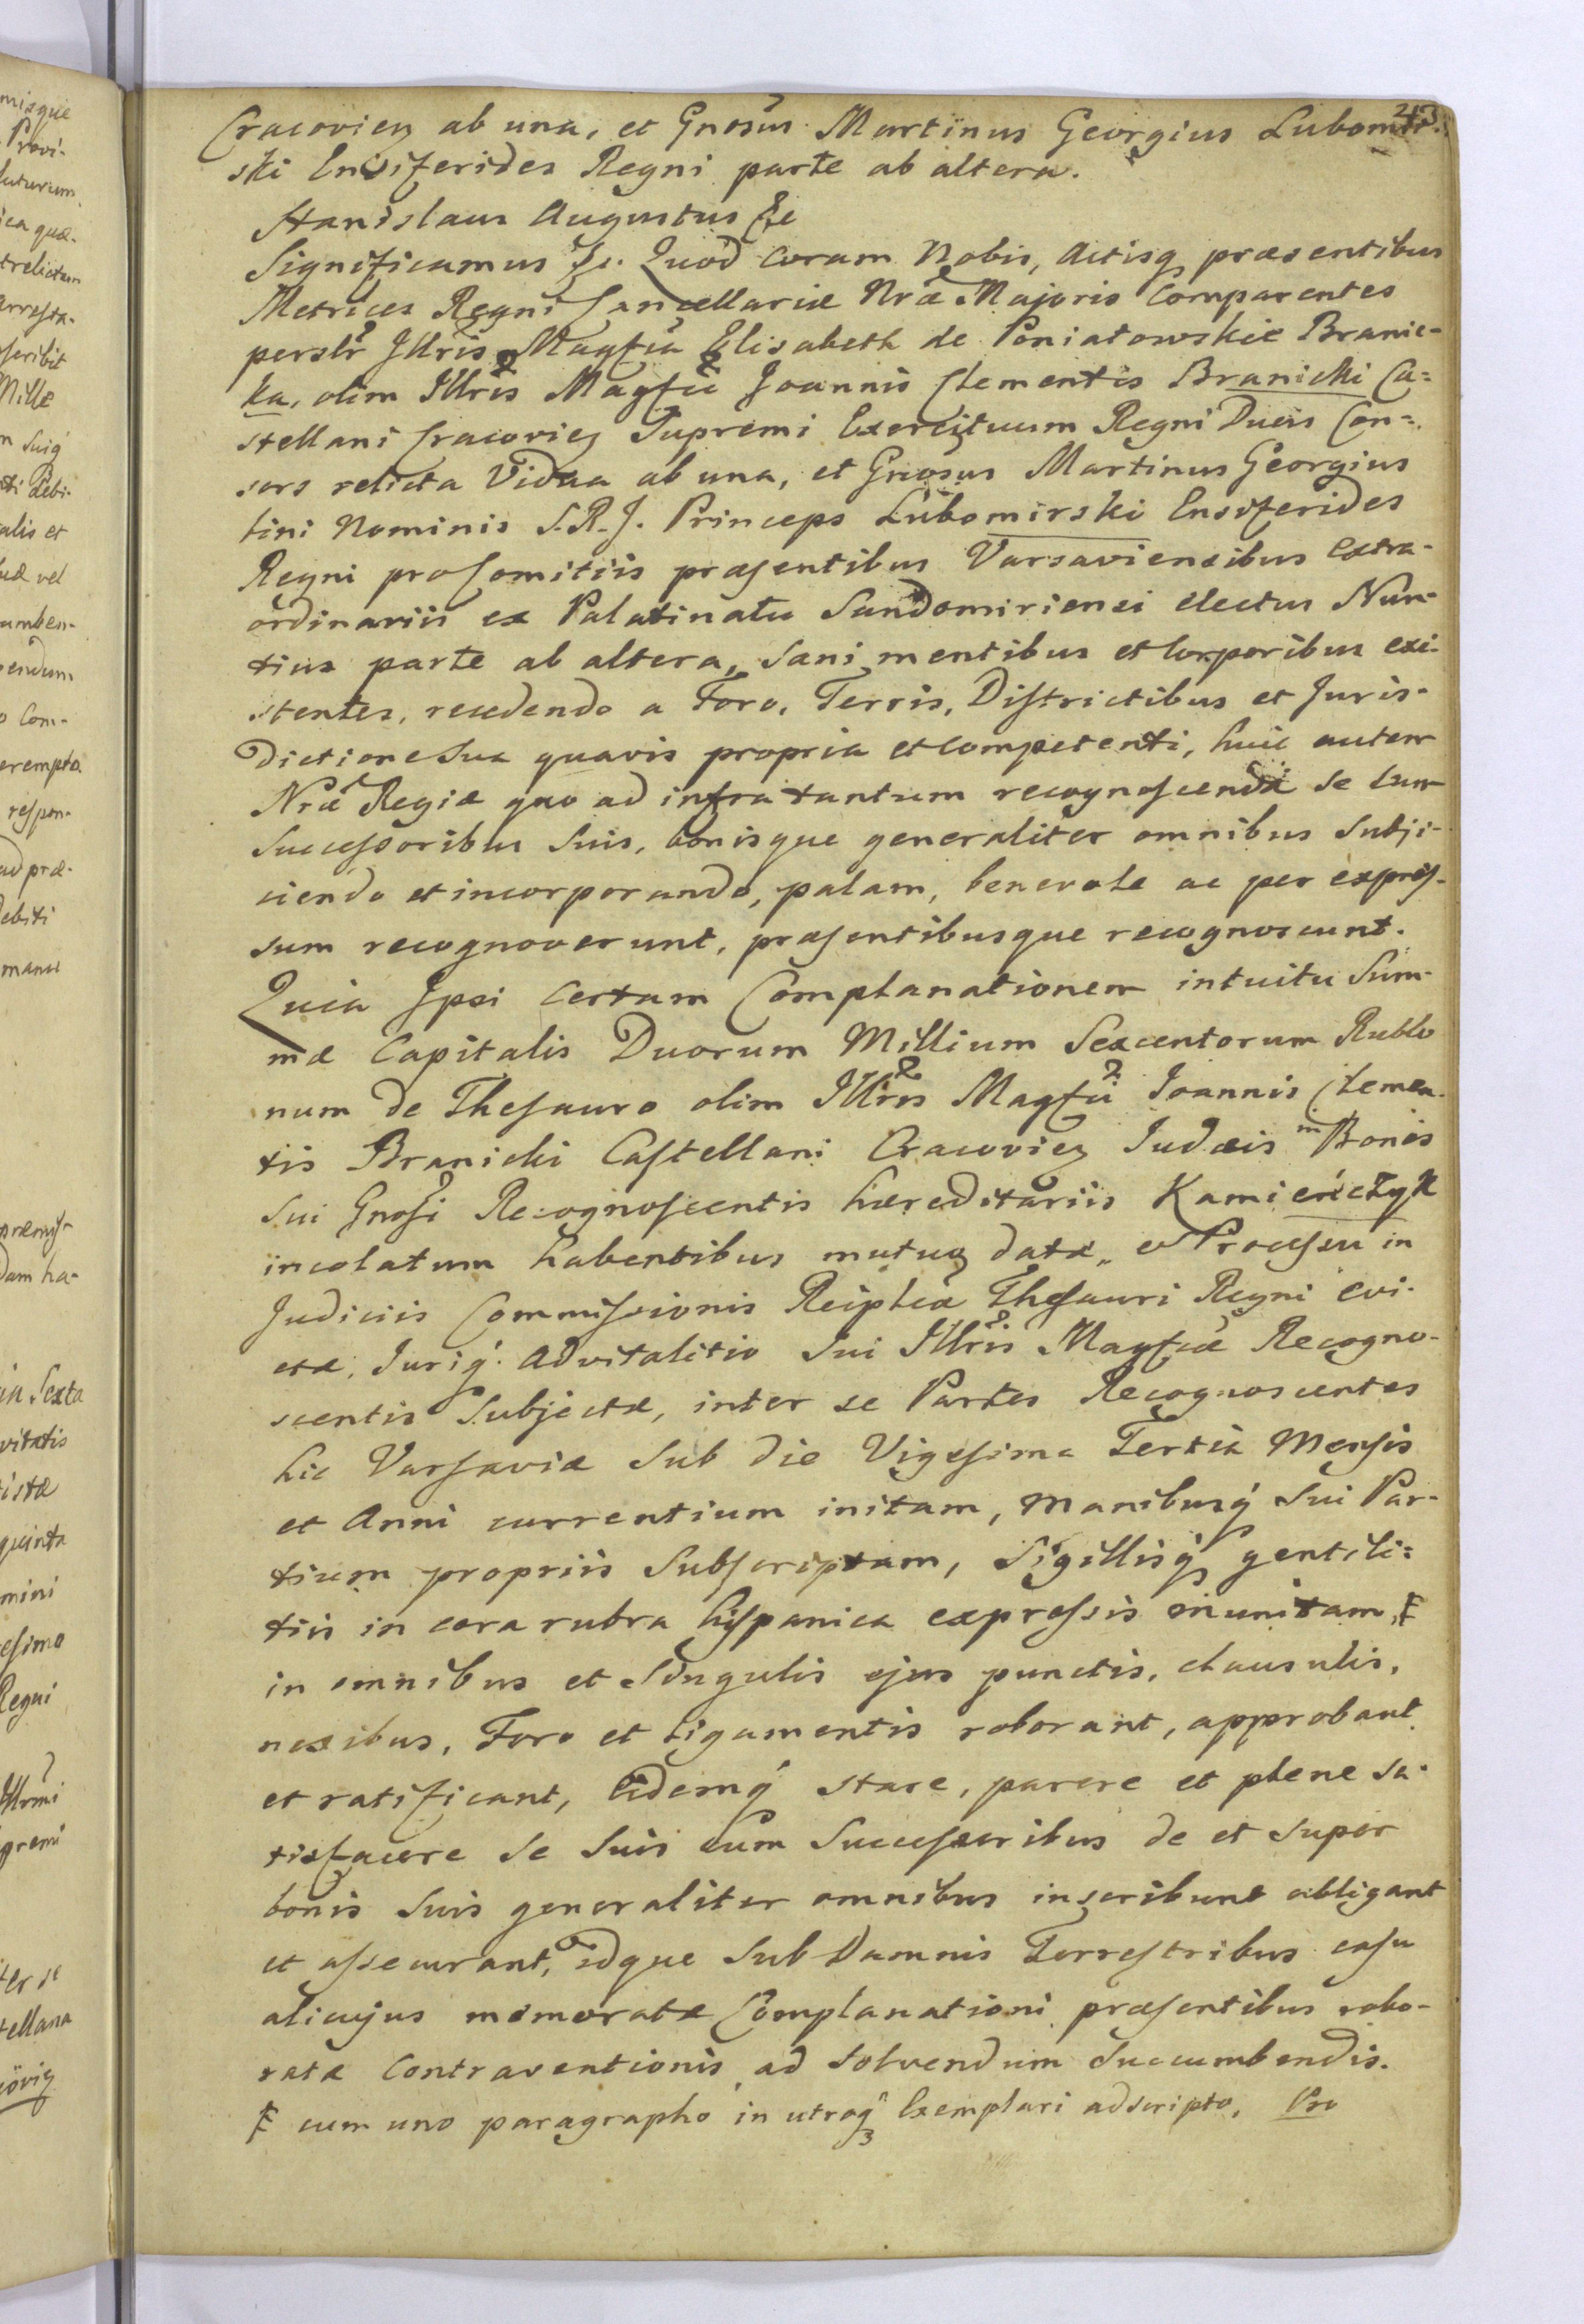 213.
Cracovien ab una, et Gnosus Martinus Georgius Lubomir-
ski Ensiferides Regni parte ab altera.
Stanislaus Augustus &c
Significamus &c. Quod coram Nobis, Actisq præsentibus
Metrices Regni Cancellariæ Nræ Majoris Comparentes
persلr Illris Magfca Elisabeth de Poniatowskie Branic-
ka, olim Illris Magfci Joannis Clementis Branicki Ca=
stellani Cracovien Supremi Exercituum Regni Ducis Con=
sors relicta Vidua ab una, et Gnosus Martinus Georgius
bini Nominis S.R.J. Princeps Lubomirski Ensiferides
Regni pro Comitiis præsentibus Varsaviensibus extra-
ordinariis ex Palatinatu Sandomiriensi electus Nun-
tius parte ab altera, Sani mentibus et Corporibus exi-
stentes, recedendo a Foro, Terris, Districtibus et Juris-
dictione Sua quavis propria et Competenti, huic autem
Nræ Regiæ quo ad infra tantum recognoscenda se cum
Successoribus Suis, bonisque generaliter omnibus Subji-
ciendo et incorporando, palam, benevole ac per expres-
sum recognoverunt, præsentibusque recognoscunt.
Quia Ipsi Certam Complanationem intuitu Sum-
mæ Capitalis Duorum Millium Sexcentorum Rublo
num de Thesauro olim Illris Magfci Joannis Clemen-
tis Branicki Castellani Cracovien Judæis in Bonis
Sui Gnosi Recognoscentis hæreditariis Kamieńczyk
incolatum habentibus mutuo datæ, e Processu in
Judiciis Commissionis Reiplcæ Thesauri Regni evi-
ctæ, Juriq. Advitalitio Sui Illris Magfcæ Recogno-
scentis Subjectæ, inter se Partes Recognoscentes
hic Varsaviæ Sub die Vigesima Tertia Mensis
et Anni currentium initam, Manibusq Sui Par-
tium propriis Subscriptam, Sigillisq gentili=
tiis in cera rubra hispanica expressis munitam, ŧ
in omnibus et Singulis ejus punctis, clausulis,
nexibus, Foro et ligamentis roborant, approbant
et ratificant, Eidemq stare, parere et plene sa-
tisfacere Se Suis cum Successoribus de et Super
bonis Suis generaliter omnibus inscribunt obligant
et assecurant, idque Sub Damnis Terrestribus casu
alicujus memoratæ Complanationi præsentibus robo-
ratæ Contraventionis, ad Solvendum Succumbendis.
ŧ cum uno paragrapho in utroq Exemplari adscripto, Pro